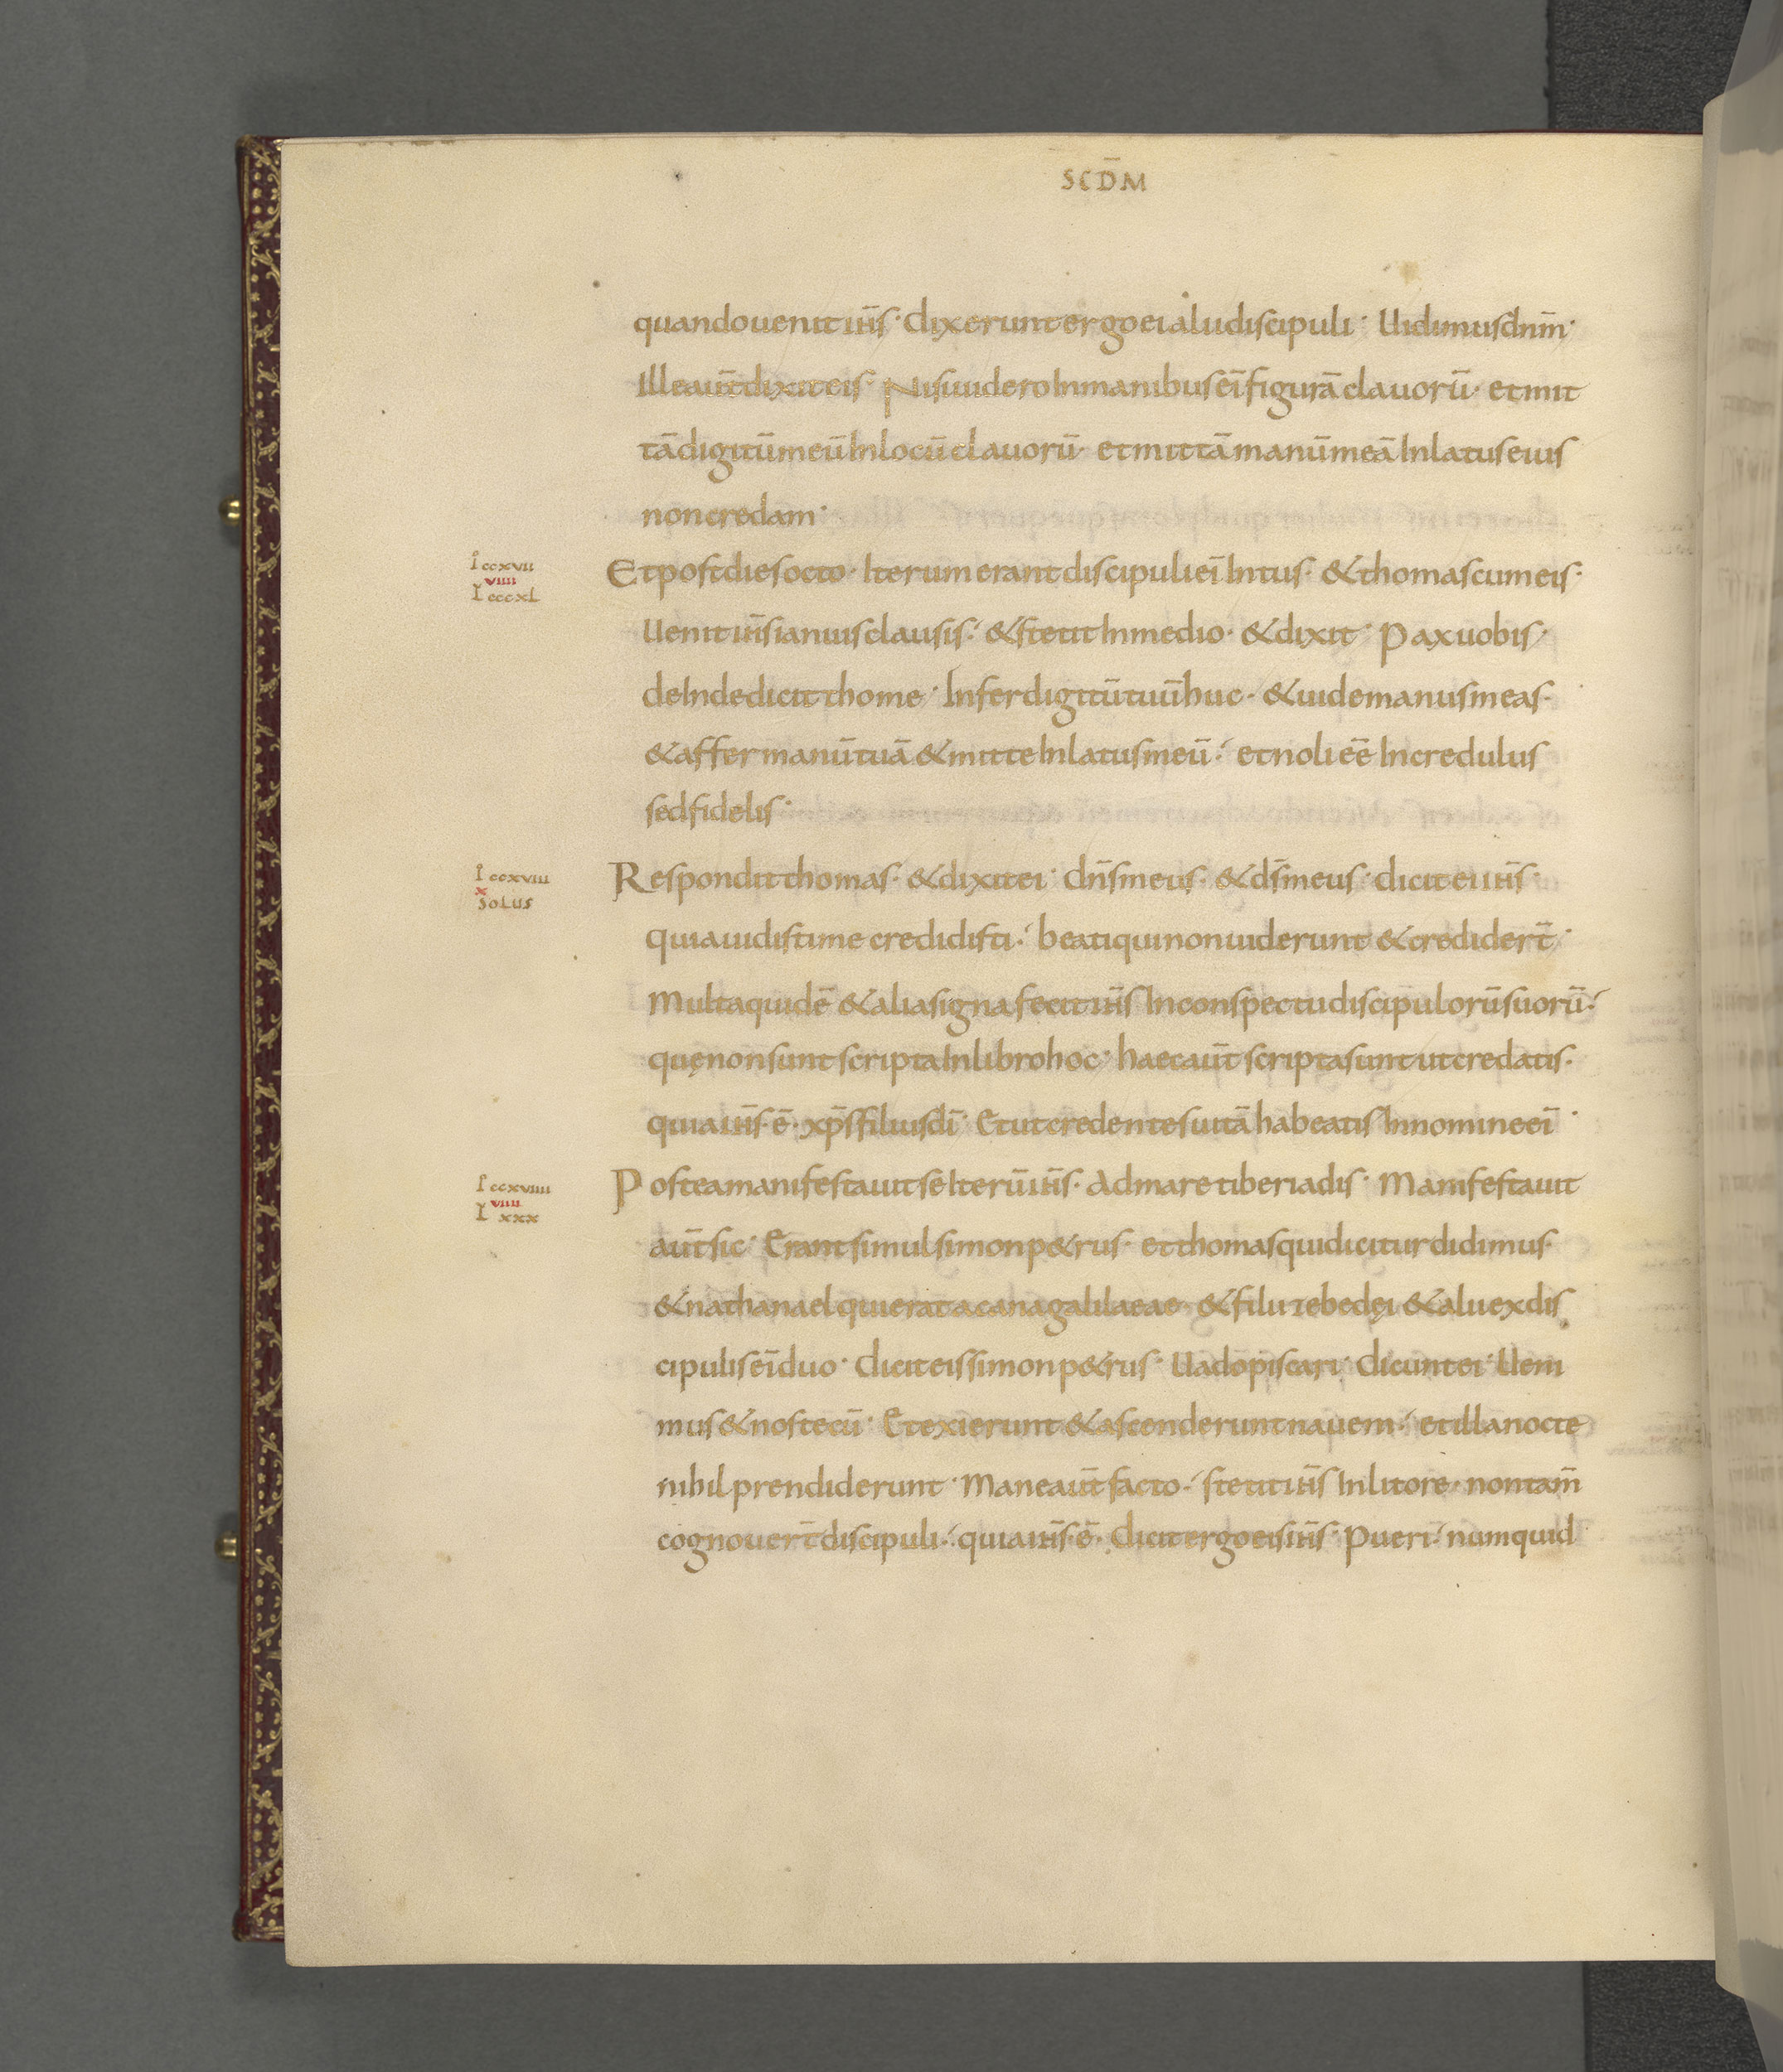 SCD̄M
quando uenit ih̅s· dixerunt ergo ei alii discipuli· Uidimus dn̅m·
Ille aut̄ dixit eis· Nisi uidero In manibus ei̅ figurā clauorū· et mit
tā digitū meū In locū clauorū et mittā manū meā In latus eius
non credam·
I ccxvii
viiii
I cccxL
Et post dies octo· Iterum erant discipuli ei̅ Intus· & thomas cum eis·
Uenit ih̅s ianuis clausis· & stetit In medio· & dixit· Pax uobis·
deInde dicit thome· Infer digitū tuū huc· & uide manus meas·
& affer manū tuā & mitte In latus meū· et noli eē Incredulus
sed fidelis·
I ccxviii
x
SoLus
Respondit thomas· & dixit ei· dn̅s meus· & ds̅ meus· dicit ei ih̅s·
quia uidisti me credidisti· beati qui non uiderunt & credider̄t·
Multa quidē & alia signa fecit ih̅s In conspectu discipulorū suorū·
quę non sunt scripta In libro hoc· haec aut̄ scripta sunt ut credatis·
quia ih̅s· ē· xp̅s filius dī· Et ut credentes uitā habeatis In nomine ei̅·
I ccxviiii
viiii
I xxx
Postea manifestauit se Iterū ih̅s· Ad mare tiberiadis· Manifestauit
aut̄ sic· Erant simul simon p&rus· et thomas qui dicitur didimus·
& nathanael qui erat a cana galilaeae· & filii zebedęi & alii ex dis
cipulis ei̅ duo· dicit eis simon p&rus· Uado piscari· dicunt ei· Ueni
mus & nos tecū· Et exierunt & ascenderunt nauem· et illa nocte
nihil prendiderunt· Mane aut̄ facto· stetit ih̅s In litore· non tam̅
cognouer̄t discipuli· quia ih̅s· ē· dicit ergo eis ih̅s· Pueri· numquid